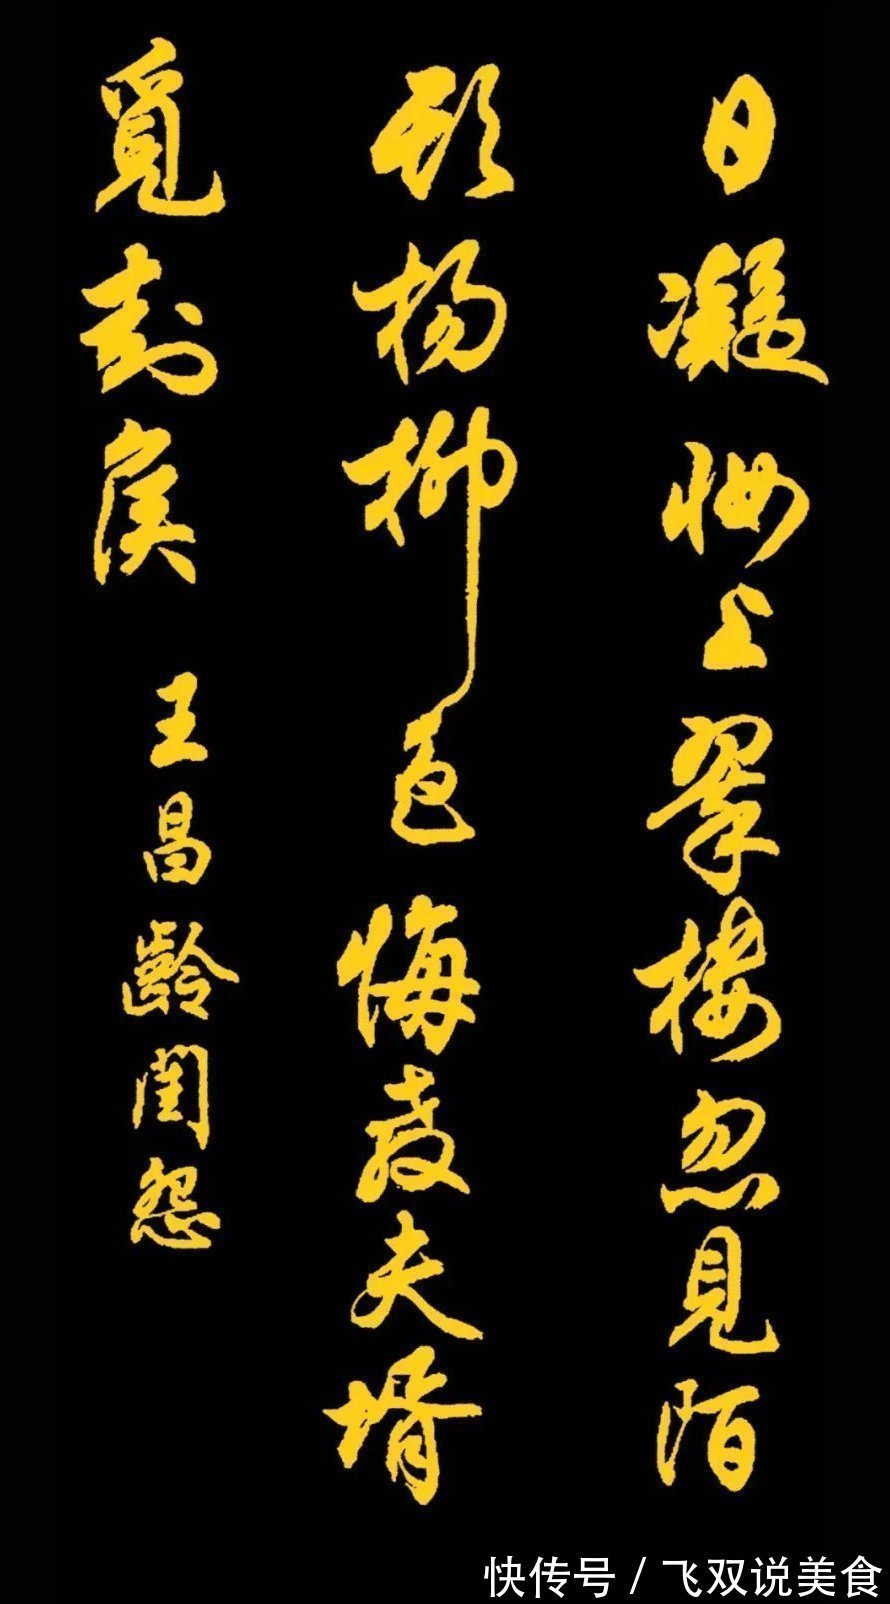 日凝妝上翠樓忽見陌
頭楊柳色悔教夫壻
覓封侯
王昌齡閨怨
快传号 / 飞双说美食